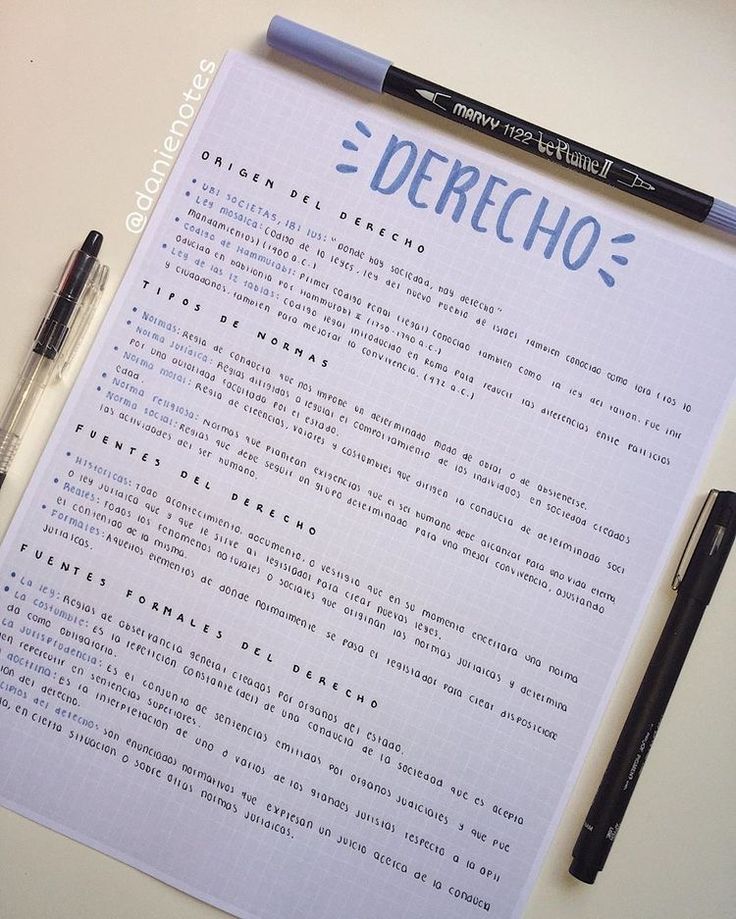 @danienotes
MARVY 1122 Le Plume II
DERECHO
ORIGEN DEL DERECHO
• UBI SOCIETAS, IBI IUS: "Donde hay sociedad, hay derecho"
• Ley mosaica: Código de 10 leyes, ley del nuevo pueblo de Israel también conocido como tora (los 10
mandamientos) (1900 a.C.)
• Código de Hammurabi: Primer código penal (legal) Conocido también como la ley del talión. Fue intr
oducido en babilonia por Hammurabi I (1750-1790 a.C.)
• Ley de las 12 tablas: Código legal introducido en Roma para reducir las diferencias entre patricios
y ciudadanos, también para mejorar la convivencia. (492 a.C.)
TIPOS DE NORMAS
• Normas: Regla de conducta que nos impone un determinado modo de obrar o de abstenerse.
• Norma jurídica: Reglas dirigidas a regular el comportamiento de los individuos en sociedad creados
por una autoridad facultada por el estado.
• Norma moral: Regla de creencias, valores y costumbres que dirigen la conducta de determinada soci
edad.
• Norma religiosa: Normas que plantean exigencias que el ser humano debe alcanzar para una vida eterna
• Norma social: Reglas que debe seguir un grupo determinado para una mejor convivencia, ajustando
las actividades del ser humano.
FUENTES DEL DERECHO
• Históricas: Todo acontecimiento, documento, o vestigio que en su momento encerrara una norma
o ley jurídica que y que le sirve al legislador para crear nuevas leyes.
• Reales: Todos los fenómenos naturales o sociales que originan las normas jurídicas y determina
el contenido de la misma.
• Formales: Aquellos elementos de donde normalmente se basa el legislador para crear disposicione
jurídicas.
FUENTES FORMALES DEL DERECHO
• La ley: Reglas de observancia general creadas por órganos del estado.
• La costumbre: Es la repetición constante (del) de una conducta de la sociedad que es acepta
da como obligatoria.
La jurisprudencia: Es el conjunto de sentencias emitidas por órganos judiciales y que pue
en repercutir en sentencias superiores.
doctrina: Es la interpretación de uno o varios de los grandes juristas respecto a la opi
ión del derecho.
cipios del derecho: son enunciados normativos que expresan un juicio acerca de la conducta
a, en cierta situación o sobre otras normas jurídicas.